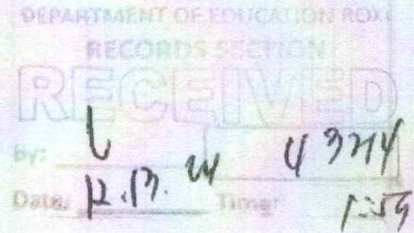 DEPARTMENT OF EDUCATION ROXI
RECORDS SECTION
RECEIVED
By:
Date: 12.13. Time: 1:59